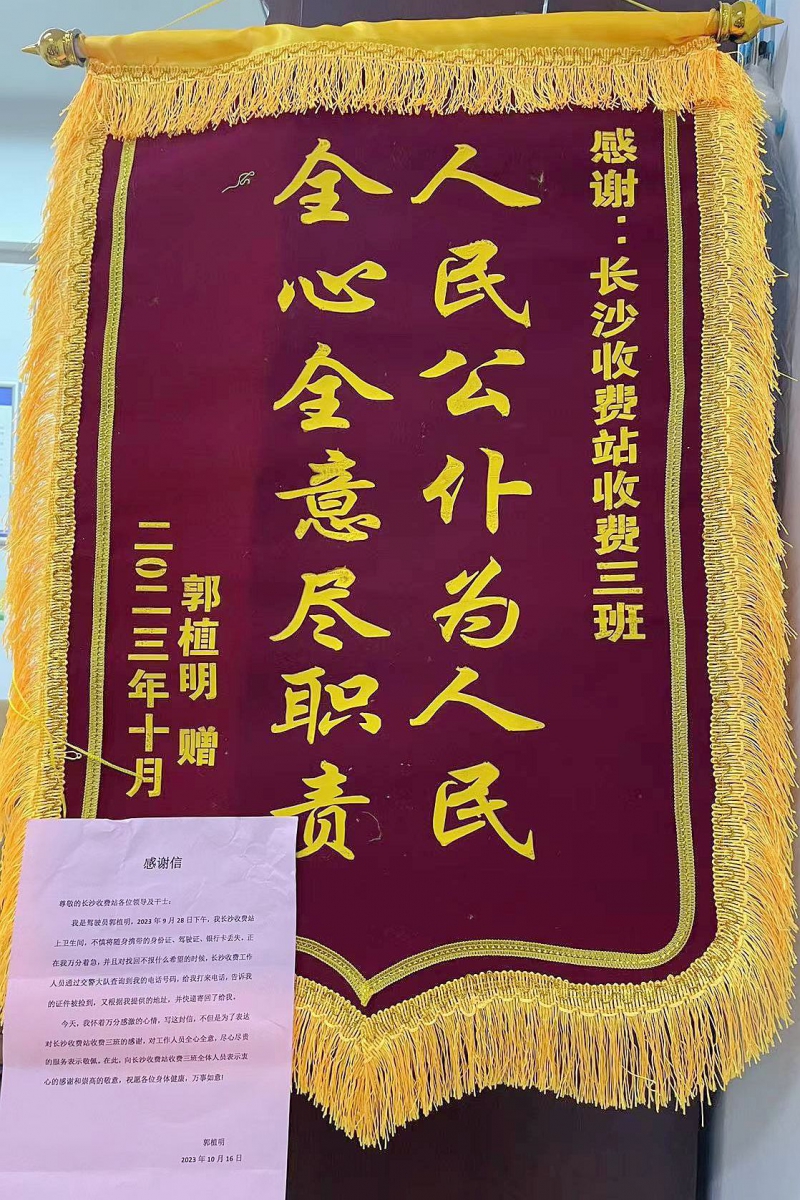 感谢：长沙收费站收费三班
人民公仆为人民
全心全意尽职责
郭植明 赠
二〇二三年十月
感谢信
尊敬的长沙收费站各位领导及干士：
我是驾驶员郭植明，2023年9月28日下午，我长沙收费站
上卫生间，不慎将随身携带的身份证、驾驶证、银行卡丢失，正
在我万分着急，并且对找回不报什么希望的时候，长沙收费工作
人员通过交警大队查询到我的电话号码，给我打来电话，告诉我
的证件被捡到，又根据我提供的地址，并快递寄回了给我。
今天，我怀着万分感激的心情，写这封信，不但是为了表达
对长沙收费站收费三班的感谢，对工作人员全心全意，尽心尽责
的服务表示敬佩。在此，向长沙收费站收费三班全体人员表示衷
心的感谢和崇高的敬意，祝愿各位身体健康，万事如意！
郭植明
2023年10月16日